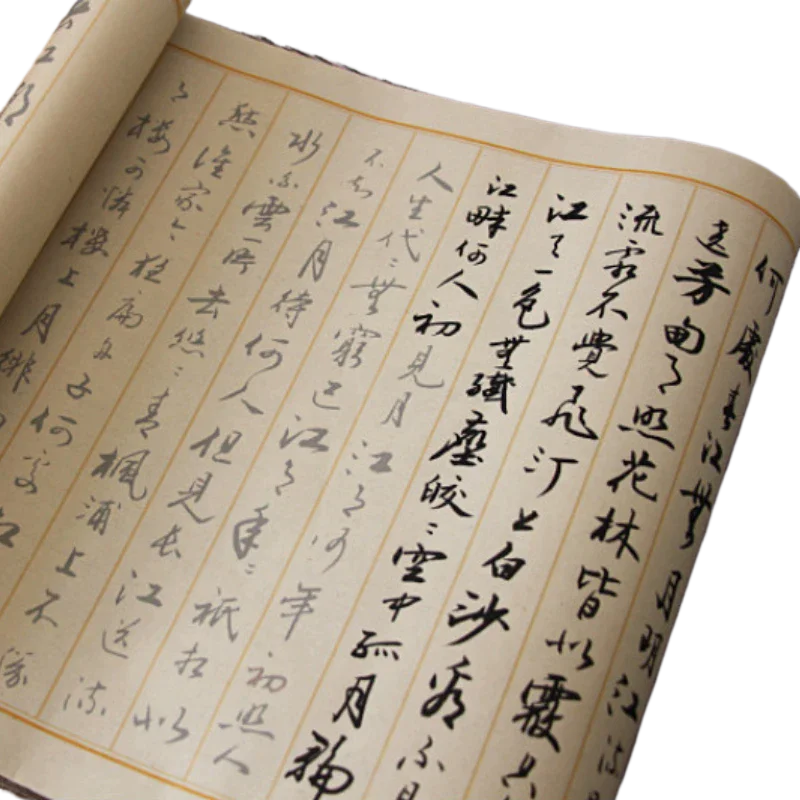 何處春江無月明江流
遶芳甸月照花林皆似霰空
流霜不覺飛汀上白沙看不見
江天一色無纖塵皎々空中孤月輪
江畔何人初見月江月何年初照人
人生代々無窮已江月年々祇相似
不知江月待何人但見長江送流
水白雲一片去悠々青楓浦上不勝
愁誰家今夜扁舟子何處相
月樓可憐樓上月徘徊